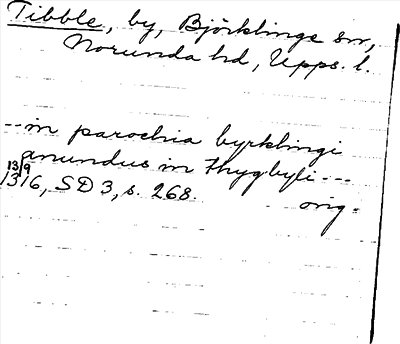 Tibble, by, Björklinge sn,
Norunda hd, Upps. l.
--in parochia byrklingi
anundus in thygbyli---
13/9
1316, SD 3, s. 268. orig.